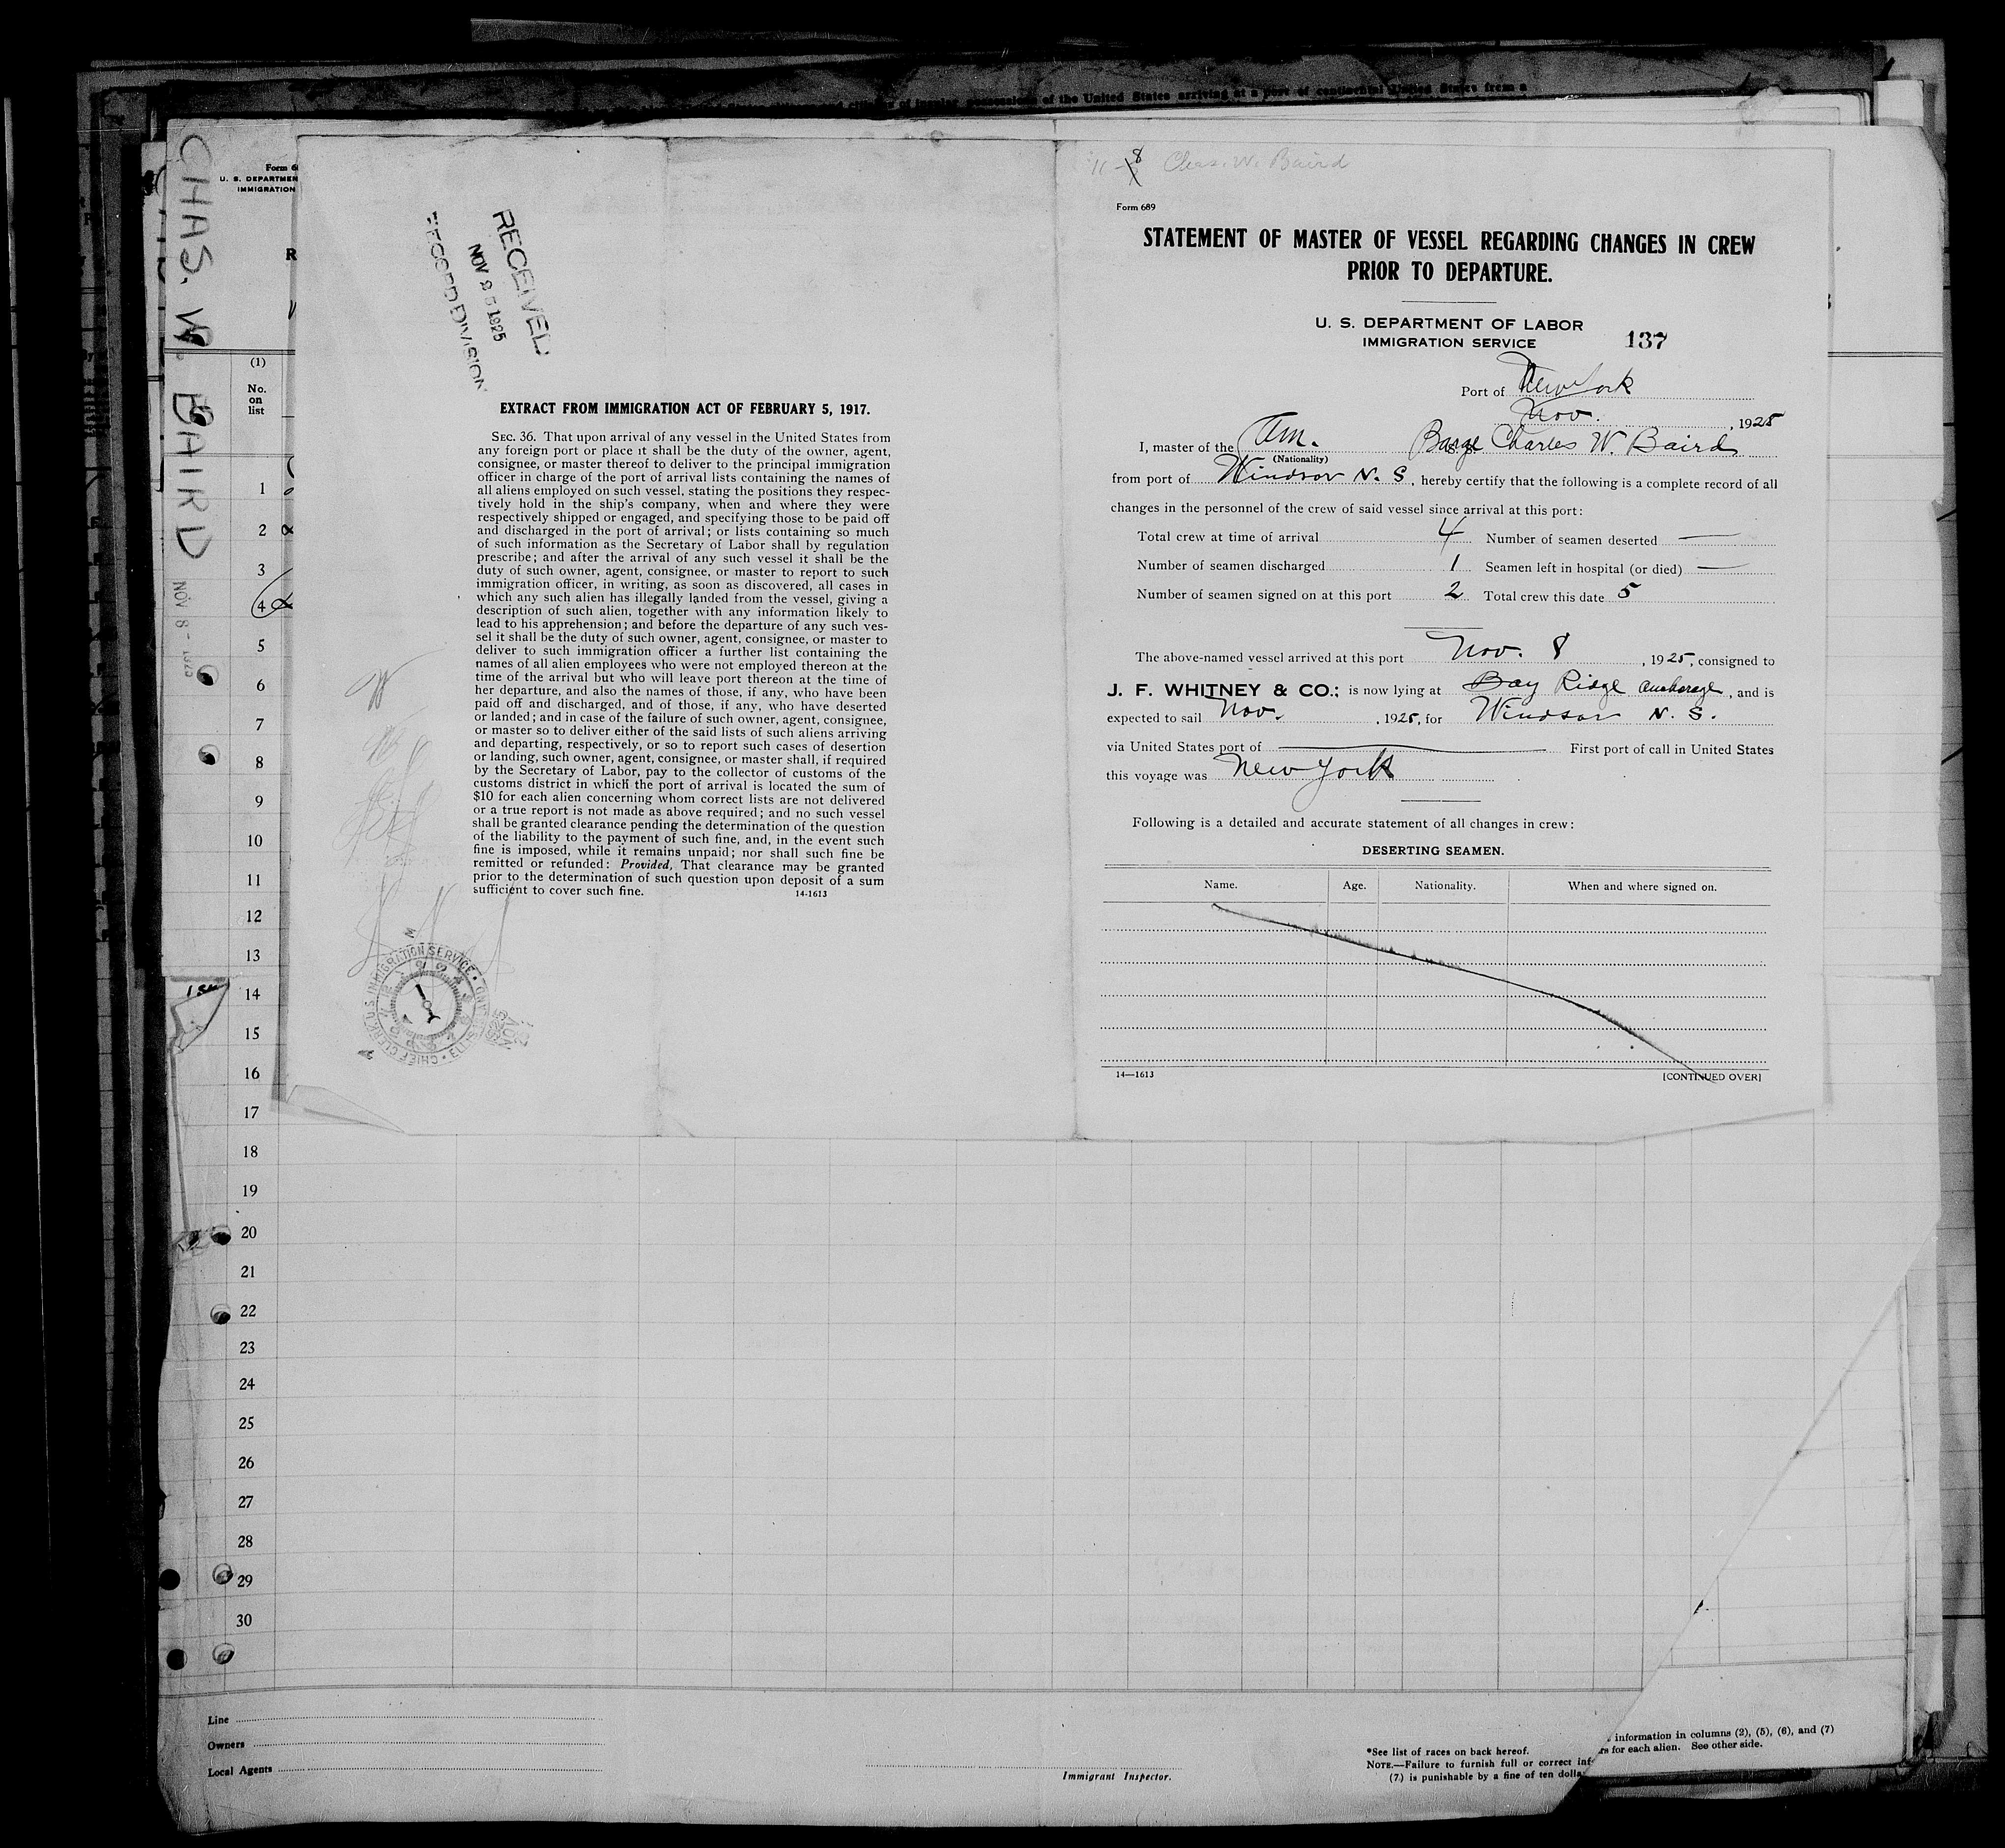 of the United States arriving at a port of continental United States from a
CHAS. W. BAIRD
NOV 8 -
Form
U. S. DEPARTMEN
IMMIGRATION
R
(1)
No.
on
list
1
2
3
4
5
6
7
8
9
10
11
12
13
14
15
16
17
18
19
20
21
22
23
24
25
26
27
28
29
30
Line
Owners
Local Agents
Immigrant Inspector.
*See list of races on back hereof.
NOTE.—Failure to furnish full or correct inf
(7) is punishable by a fine of ten dolla
information in columns (2), (5), (6), and (7)
rs for each alien. See other side.
RECEIVED
NOV 25 1925
RECORD DIVISION
EXTRACT FROM IMMIGRATION ACT OF FEBRUARY 5, 1917.
SEC. 36. That upon arrival of any vessel in the United States from
any foreign port or place it shall be the duty of the owner, agent,
consignee, or master thereof to deliver to the principal immigration
officer in charge of the port of arrival lists containing the names of
all aliens employed on such vessel, stating the positions they respec-
tively hold in the ship's company, when and where they were
respectively shipped or engaged, and specifying those to be paid off
and discharged in the port of arrival; or lists containing so much
of such information as the Secretary of Labor shall by regulation
prescribe; and after the arrival of any such vessel it shall be the
duty of such owner, agent, consignee, or master to report to such
immigration officer, in writing, as soon as discovered, all cases in
which any such alien has illegally landed from the vessel, giving a
description of such alien, together with any information likely to
lead to his apprehension; and before the departure of any such ves-
sel it shall be the duty of such owner, agent, consignee, or master to
deliver to such immigration officer a further list containing the
names of all alien employees who were not employed thereon at the
time of the arrival but who will leave port thereon at the time of
her departure, and also the names of those, if any, who have been
paid off and discharged, and of those, if any, who have deserted
or landed; and in case of the failure of such owner, agent, consignee,
or master so to deliver either of the said lists of such aliens arriving
and departing, respectively, or so to report such cases of desertion
or landing, such owner, agent, consignee, or master shall, if required
by the Secretary of Labor, pay to the collector of customs of the
customs district in which the port of arrival is located the sum of
$10 for each alien concerning whom correct lists are not delivered
or a true report is not made as above required; and no such vessel
shall be granted clearance pending the determination of the question
of the liability to the payment of such fine, and, in the event such
fine is imposed, while it remains unpaid; nor shall such fine be
remitted or refunded: Provided, That clearance may be granted
prior to the determination of such question upon deposit of a sum
sufficient to cover such fine. 14-1613
CHIEF CLERK U. S. IMMIGRATION SERVICE
1925 NOV
11-8 Chas. W. Baird
Form 689
STATEMENT OF MASTER OF VESSEL REGARDING CHANGES IN CREW
PRIOR TO DEPARTURE.
U. S. DEPARTMENT OF LABOR
IMMIGRATION SERVICE 137
Port of New York
Nov. , 1925
I, master of the Am. Barge Charles W. Baird
(Nationality)
from port of Windsor N. S., hereby certify that the following is a complete record of all
changes in the personnel of the crew of said vessel since arrival at this port:
Total crew at time of arrival 4 Number of seamen deserted —
Number of seamen discharged 1 Seamen left in hospital (or died) —
Number of seamen signed on at this port 2 Total crew this date 5
The above-named vessel arrived at this port Nov. 8, 1925, consigned to
J. F. WHITNEY & CO.; is now lying at Bay Ridge anchorage, and is
expected to sail Nov. , 1925, for Windsor N. S.
via United States port of — First port of call in United States
this voyage was New York
Following is a detailed and accurate statement of all changes in crew:
DESERTING SEAMEN.
Name. Age. Nationality. When and where signed on.
14—1613 [CONTINUED OVER]